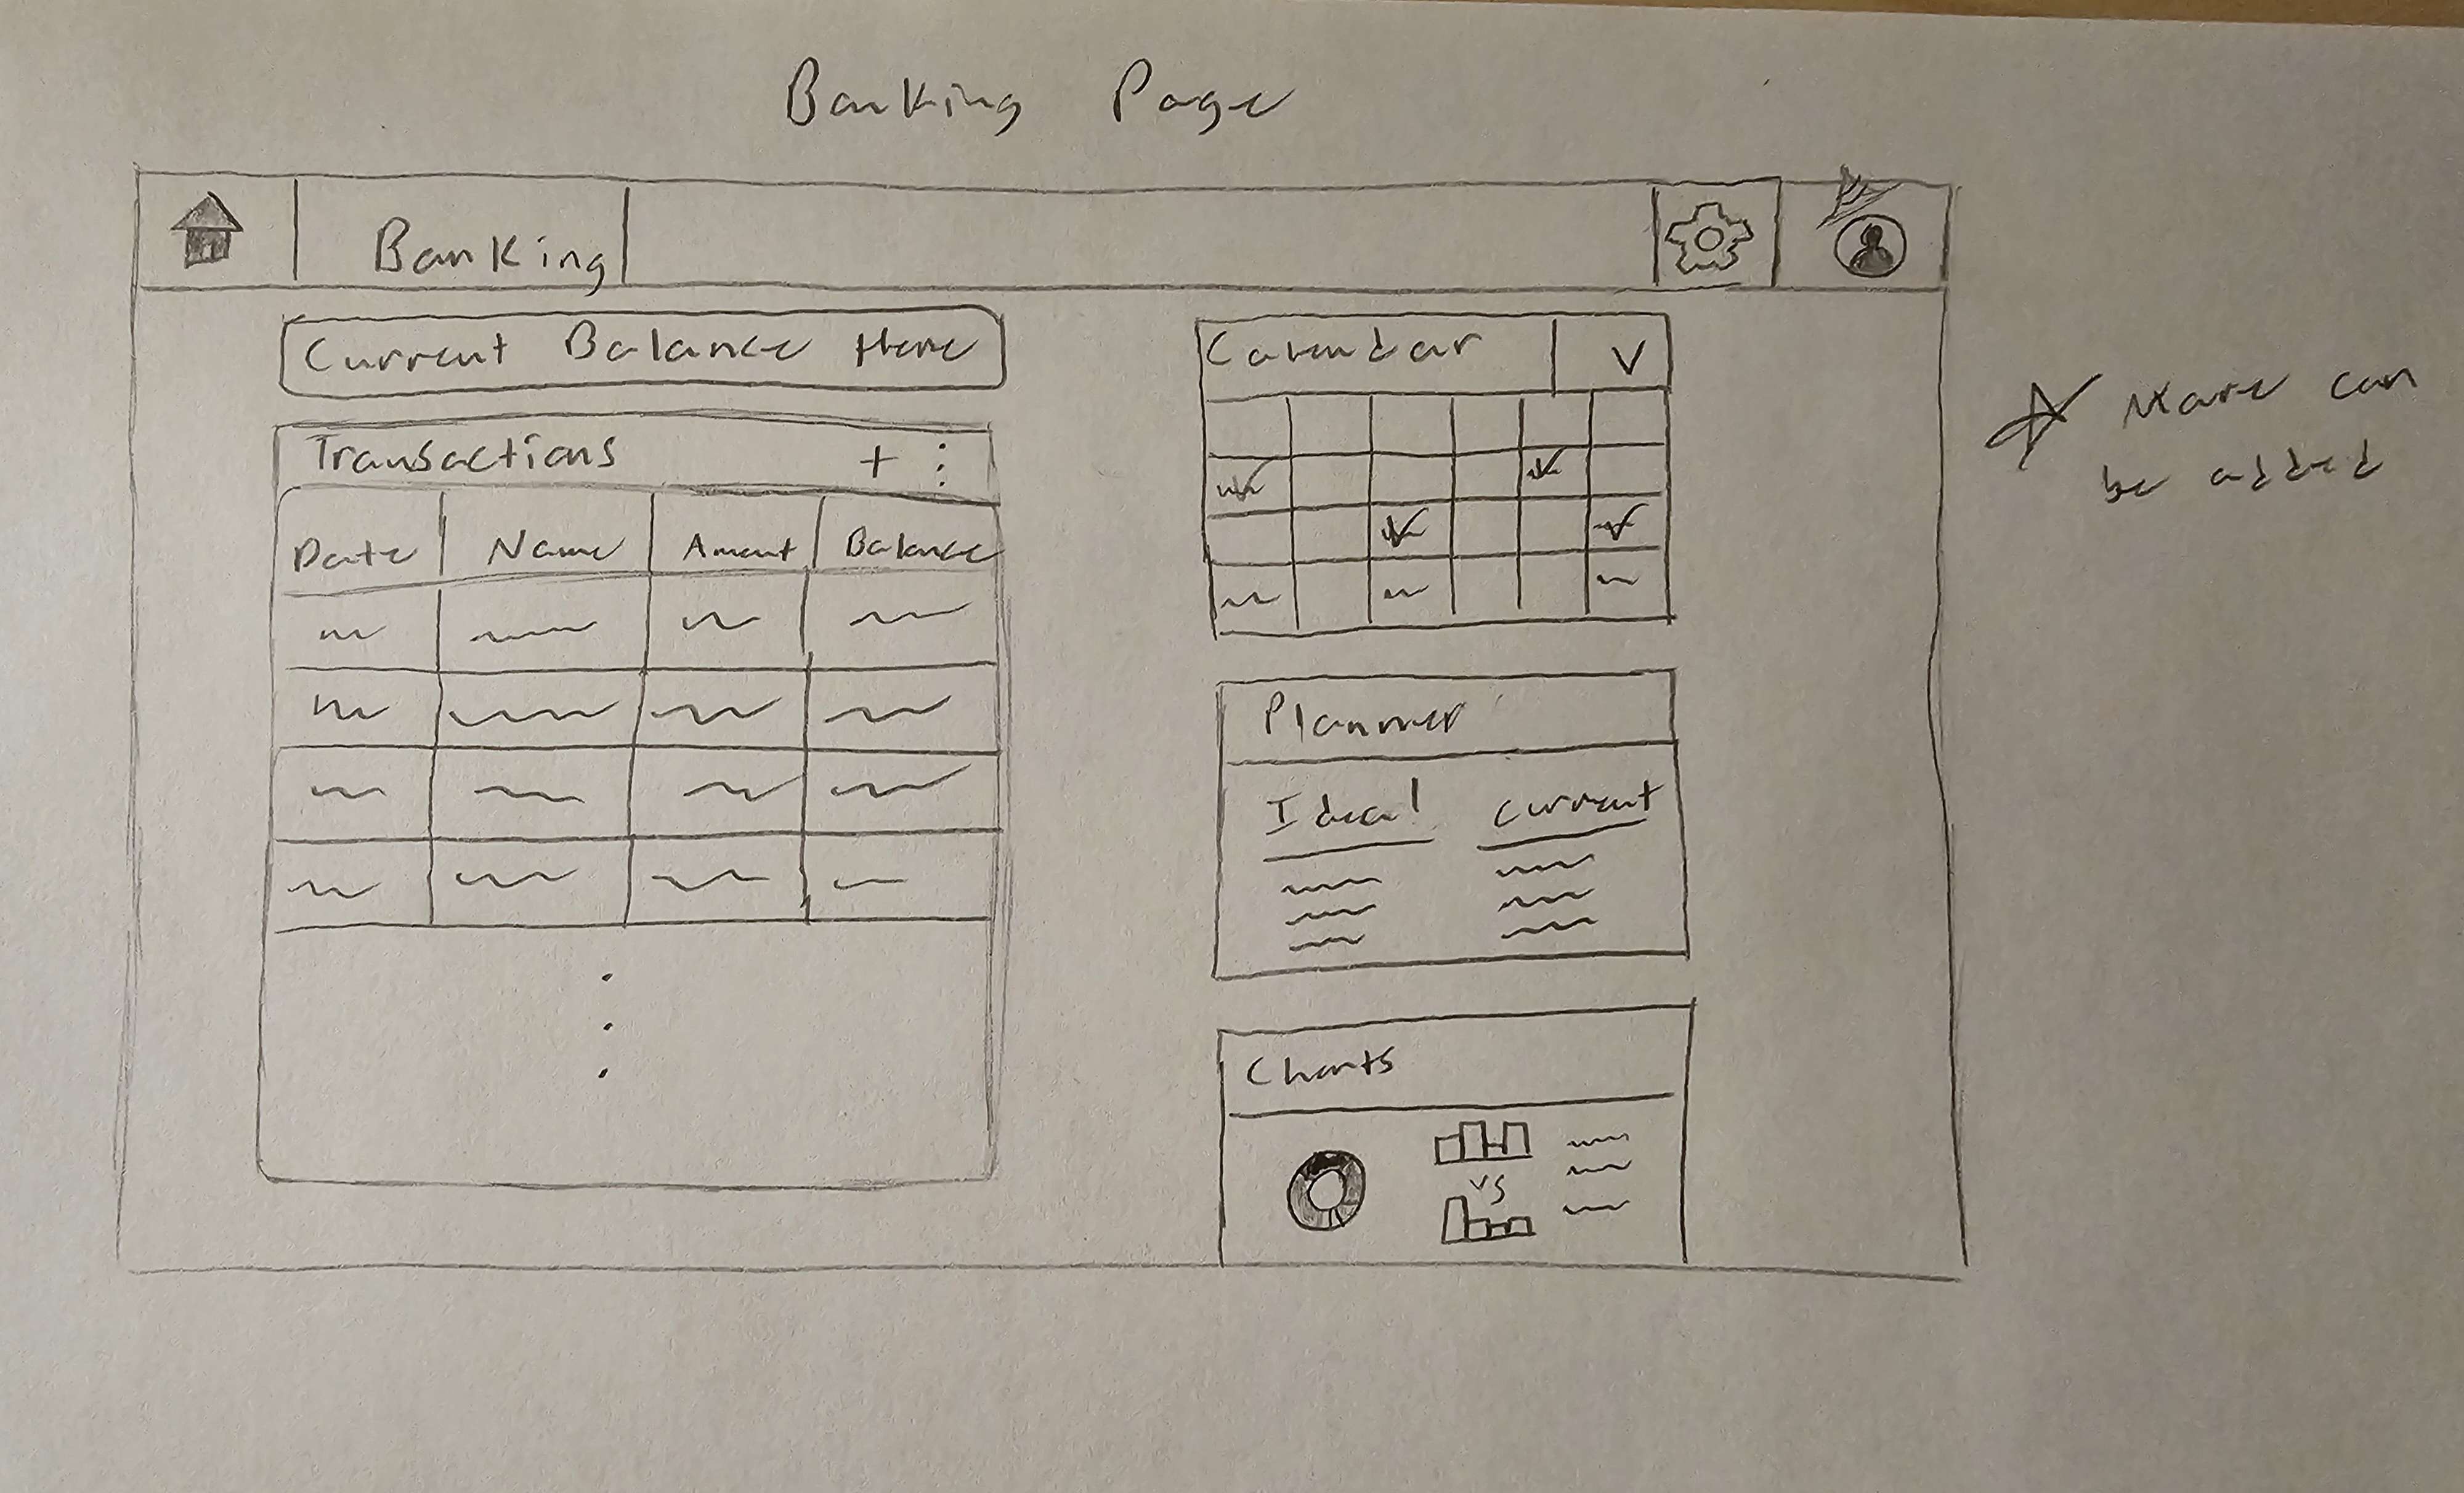 Banking Page
Banking
Current Balance Here
Transactions + :
Date Name Amount Balance
Calendar V
Planner
Ideal Current
Charts
vs
More can
be added